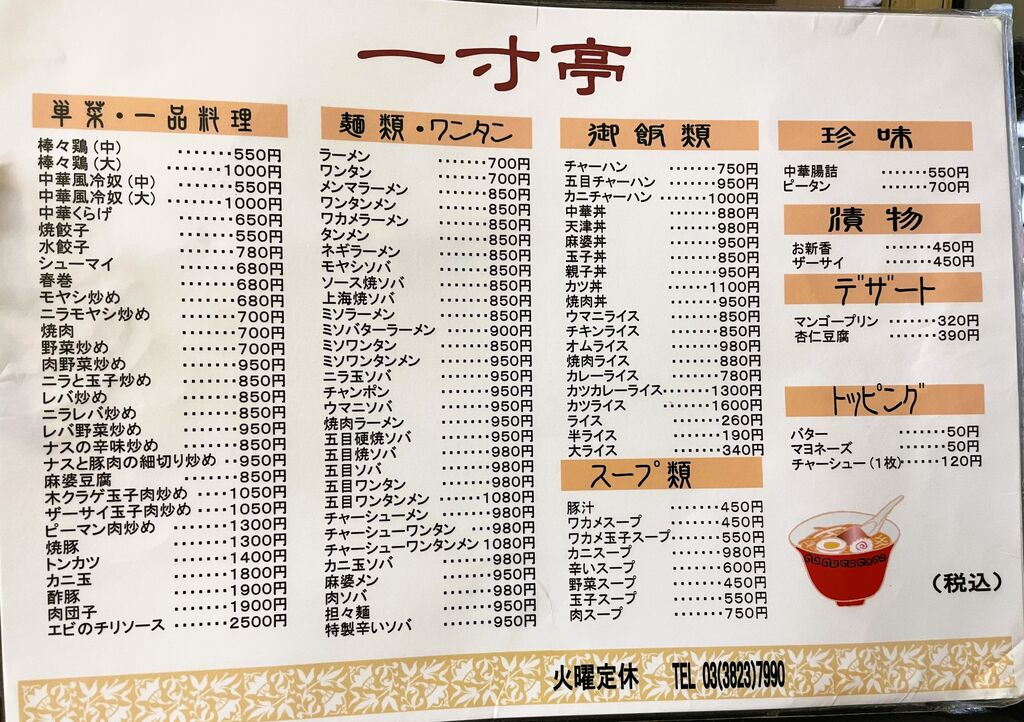 一寸亭
単菜・一品料理
棒々鶏(中)・・・・・・・550円
棒々鶏(大)・・・・・・・1000円
中華風冷奴(中)・・・・・・・550円
中華風冷奴(大)・・・・・・・1000円
中華くらげ・・・・・・・650円
焼餃子・・・・・・・550円
水餃子・・・・・・・780円
シューマイ・・・・・・・680円
春巻・・・・・・・680円
モヤシ炒め・・・・・・・680円
ニラモヤシ炒め・・・・・・・700円
焼肉・・・・・・・700円
野菜炒め・・・・・・・700円
肉野菜炒め・・・・・・・950円
ニラと玉子炒め・・・・・・・850円
レバ炒め・・・・・・・850円
ニラレバ炒め・・・・・・・850円
レバ野菜炒め・・・・・・・950円
ナスの辛味炒め・・・・・・・850円
ナスと豚肉の細切り炒め・・・950円
麻婆豆腐・・・・・・・850円
木クラゲ玉子肉炒め・・・・1050円
ザーサイ玉子肉炒め・・・・1050円
ピーマン肉炒め・・・・・・・1300円
焼豚・・・・・・・1300円
トンカツ・・・・・・・1400円
カニ玉・・・・・・・1800円
酢豚・・・・・・・1900円
肉団子・・・・・・・1900円
エビのチリソース・・・・・・・2500円
麺類・ワンタン
ラーメン・・・・・・・700円
ワンタン・・・・・・・700円
メンマラーメン・・・・・・・850円
ワンタンメン・・・・・・・850円
ワカメラーメン・・・・・・・850円
タンメン・・・・・・・850円
ネギラーメン・・・・・・・850円
モヤシソバ・・・・・・・850円
ソース焼ソバ・・・・・・・850円
上海焼ソバ・・・・・・・850円
ミソラーメン・・・・・・・850円
ミソバターラーメン・・・・・・・900円
ミソワンタン・・・・・・・850円
ミソワンタンメン・・・・・・・950円
ニラ玉ソバ・・・・・・・950円
チャンポン・・・・・・・950円
ウマニソバ・・・・・・・950円
焼肉ラーメン・・・・・・・950円
五目硬焼ソバ・・・・・・・950円
五目焼ソバ・・・・・・・980円
五目ソバ・・・・・・・950円
五目ワンタン・・・・・・・980円
五目ワンタンメン・・・・・・・1080円
チャーシューメン・・・・・・・980円
チャーシューワンタン・・・・980円
チャーシューワンタンメン 1080円
カニ玉ソバ・・・・・・・980円
麻婆メン・・・・・・・950円
肉ソバ・・・・・・・980円
担々麺・・・・・・・950円
特製辛いソバ・・・・・・・950円
御飯類
チャーハン・・・・・・・750円
五目チャーハン・・・・・・・950円
カニチャーハン・・・・・・・1000円
中華丼・・・・・・・880円
天津丼・・・・・・・980円
麻婆丼・・・・・・・950円
玉子丼・・・・・・・850円
親子丼・・・・・・・950円
カツ丼・・・・・・・1100円
焼肉丼・・・・・・・950円
ウマニライス・・・・・・・850円
チキンライス・・・・・・・850円
オムライス・・・・・・・980円
焼肉ライス・・・・・・・880円
カレーライス・・・・・・・780円
カツカレーライス・・・・・・・1300円
カツライス・・・・・・・1600円
ライス・・・・・・・260円
半ライス・・・・・・・190円
大ライス・・・・・・・340円
スープ類
豚汁・・・・・・・450円
ワカメスープ・・・・・・・450円
ワカメ玉子スープ・・・・・・・550円
カニスープ・・・・・・・980円
辛いスープ・・・・・・・600円
野菜スープ・・・・・・・450円
玉子スープ・・・・・・・550円
肉スープ・・・・・・・750円
珍味
中華腸詰・・・・・・・550円
ピータン・・・・・・・700円
漬物
お新香・・・・・・・450円
ザーサイ・・・・・・・450円
デザート
マンゴープリン・・・・・・・320円
杏仁豆腐・・・・・・・390円
トッピング
バター・・・・・・・50円
マヨネーズ・・・・・・・50円
チャーシュー(1枚)・・・・・・120円
(税込)
火曜定休 TEL 03(3823)7990